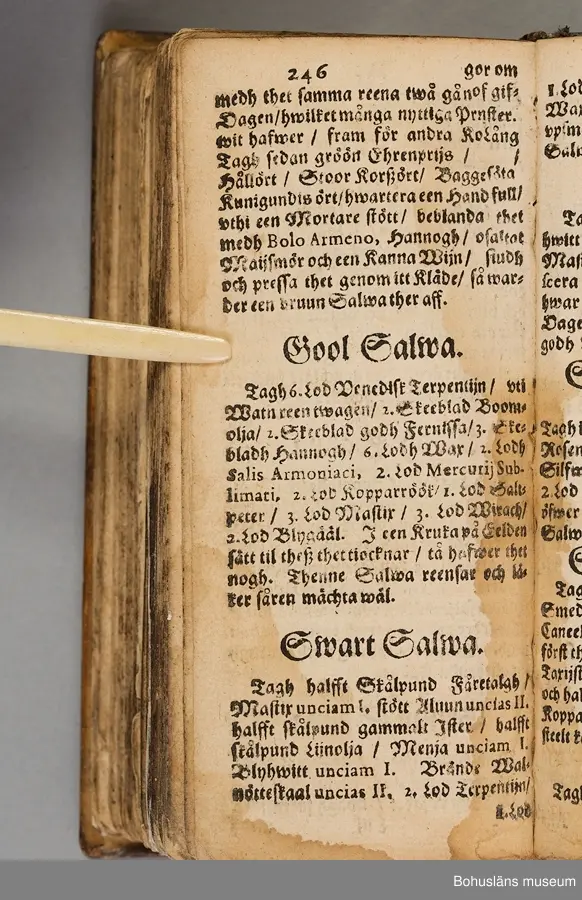 246 gor om
medh thet samma reena twå gånof gif-
Dagen/hwilket många nyttiga Prnster.
wit hafwer / fram för andra Kolång
Tagh sedan gröön Ehrenprijs / /
Hållört / Stoor Korßört/ Baggesöta
Kunigundis ört/hwartera een Hand full/
vthi een Mortare stött/ beblanda thet
medh Bolo Armeno, Hannogh/ osaltat
Maijsmör och een Kanna Wijn/ siudh
och pressa thet genom itt Kläde/ så war-
der een bruun Salwa ther aff.
Gool Salwa.
Tagh 6. Lod Venedisk Terpentijn/ vti
Watn reen twagen/ 2. Skeeblad Boom-
olja/ 2. Skeeblad godh Fernissa/3. Ske-
bladh Hannogh / 6. Lodh Wax/ 2. Lodh
Salis Armoniaci, 2. Lod Mercurij Sub-
limati, 2. Lod Kopparröök/ 1. Lod Salt-
peter / 3. Lod Mastix / 3. Lod Wirach/
2. Lod Blygåål. I een Kruka på Eelden
sätt til theß thet tiocknar / tå hafwer thet
nogh. Thenne Salwa reensar och lä-
ker såren mächta wäl.
Swart Salwa.
Tagh halfft Skålpund Fåretalgh/
Mastix unciam I. stött Aluun uncias II.
halfft skålpund gammalt Ister / halfft
skålpund Lijnolja / Menja unciam I.
Blyhwitt unciam I. Brände Wal-
nötteskaal uncias II. 2. Lod Terpentijn/
1. Lod
1. Lod
Wax
Salw
Ta
hwitt
Mast
hwar
Dage
godh
Tagh
Rosen
Silfw
2 Lod
öfwer
Salw
Tag
Smed
Caneel
först th
och hal
Koppa
Tagh
Bohusläns museum